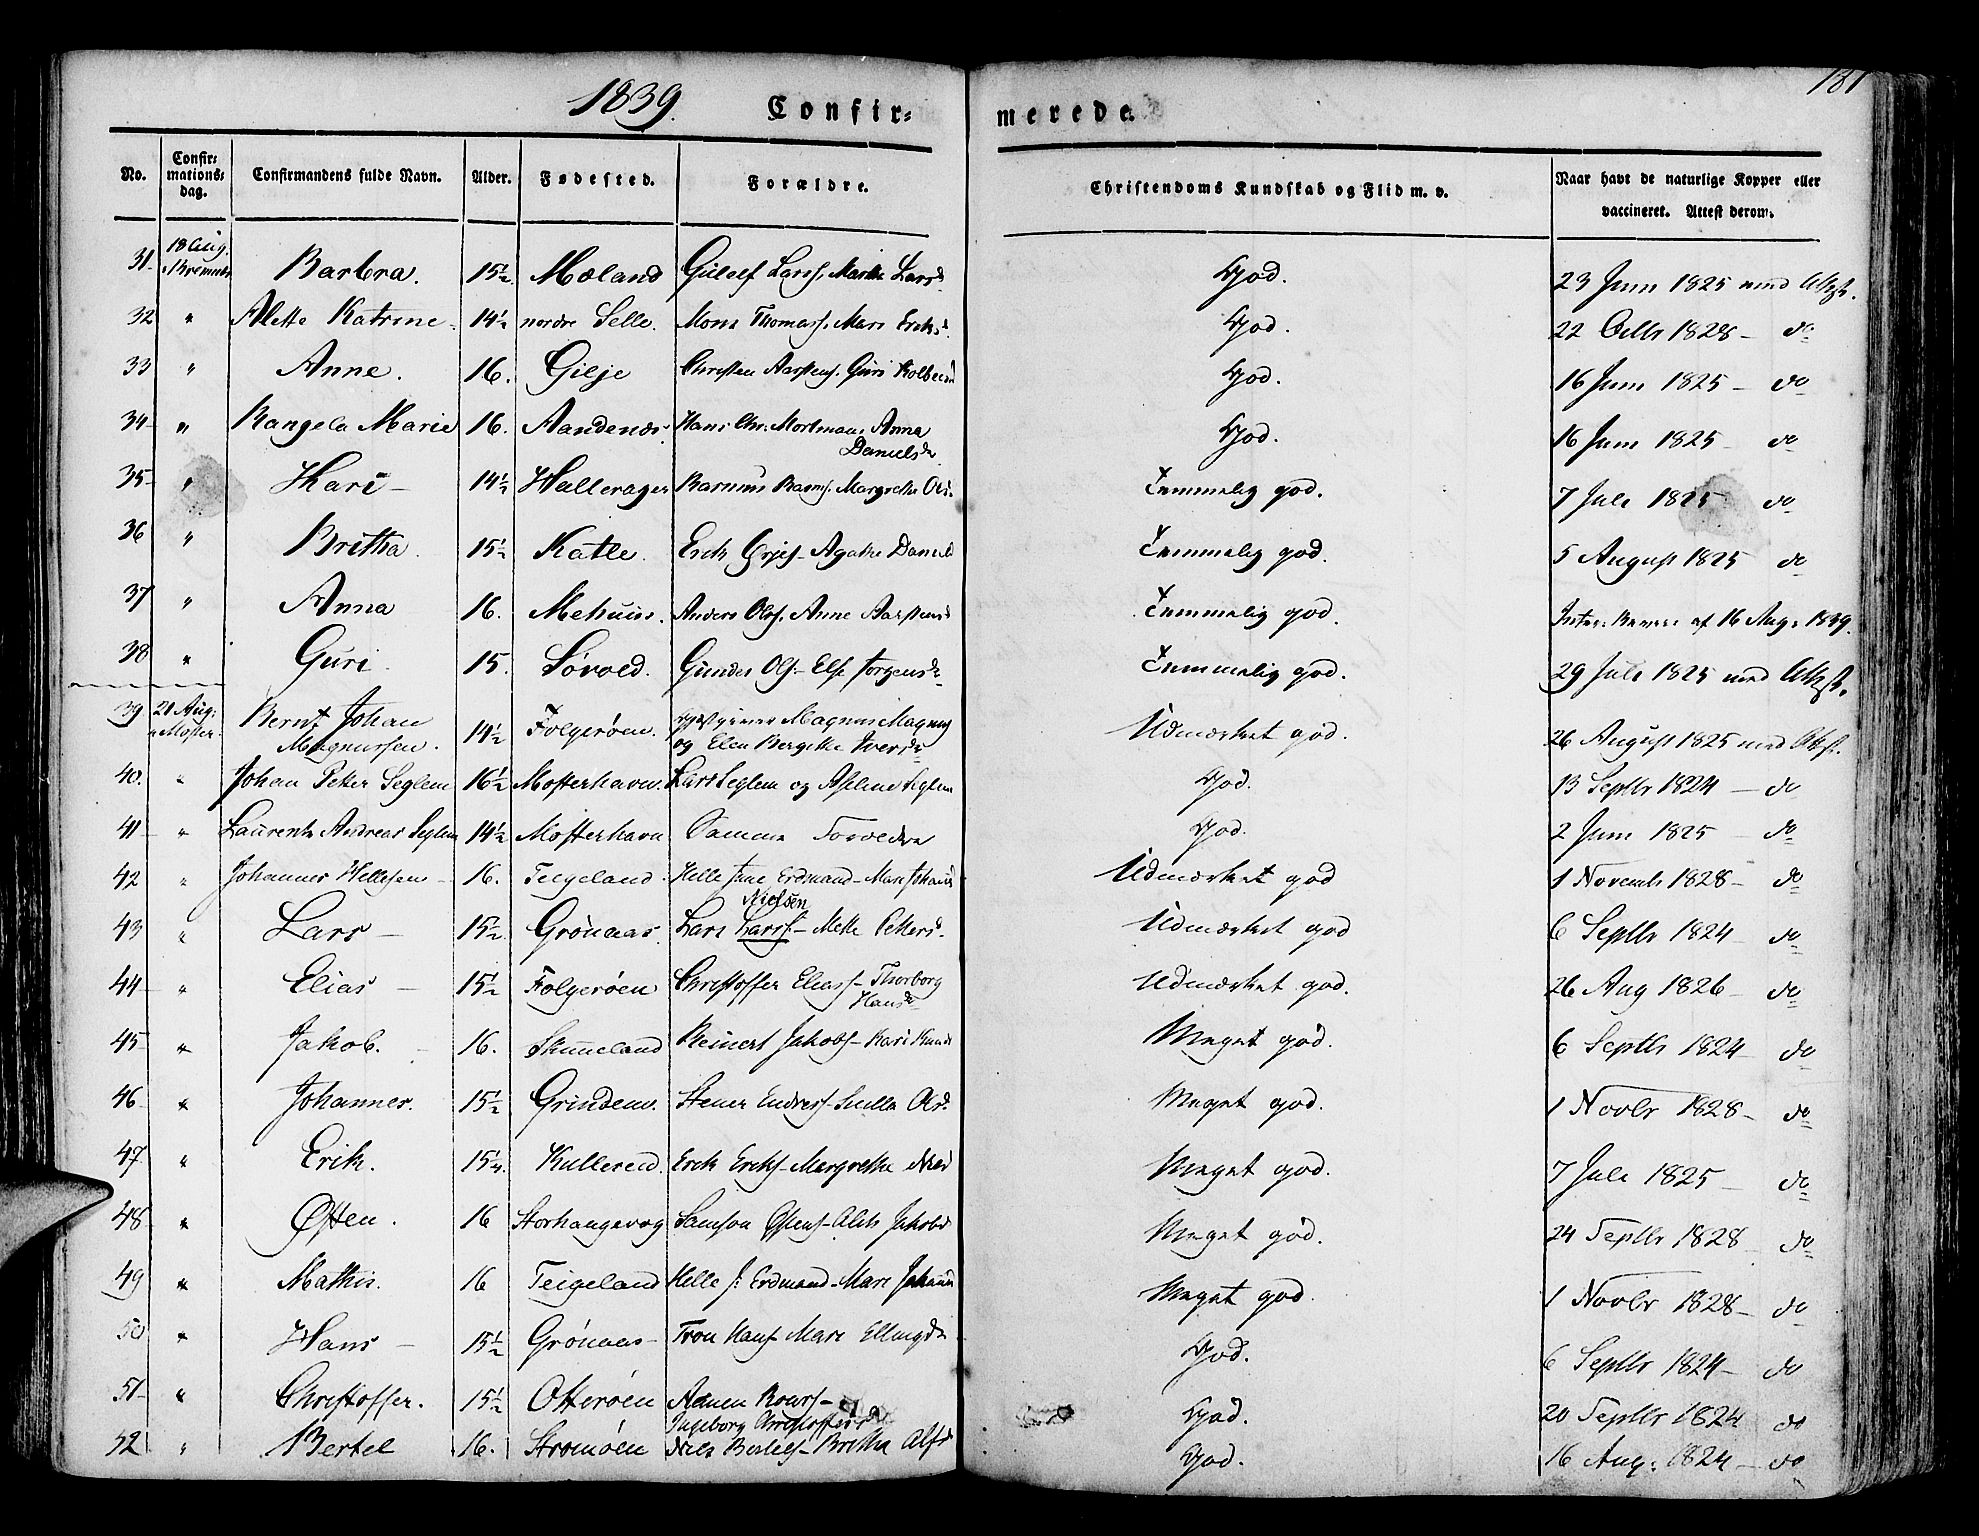 1839. Confir= merede. 181
No. Confir=mations=dag. Confirmandens fulde Navn. Alder. Fødested. Forældre. Christendoms Kundskab og Flid m. v. Naar havt de naturlige Kopper eller vaccineret. Attest derom.
31 18 Aug. Barbra. 15½ Mæland Lars God. 23 Juni 1825 med Attest.
32 " Alette Katrine 14½ nordre Selle. Mons Thomass. Mari Ericksd God. 22 Octbr 1828 – do
33 " Anne. 16. Gilje Christen Aarstens. Guri God. 16 Juni 1825 – do
34 " Rangela Marie 16. Aandenæs. Hans Chr. Mortman, Anna Danielsdr God. 16 Juni 1825 – do
35 " Kari – 14½ Hallerager Rasmus Rasms. Margrethe Olsd. Temmelig god. 7 Juli 1825 do
36 " Britha. 15½ Katle. Erik Agathe Daniels Temmelig god. 5 August 1825 do
37 " Anna 16. Mehuus. Anders Olss. Anne Aarstensd Temmelig god. af 16 Aug: 1839.
38 " Guri 15. Løvold. Gunder Ols. – Else Jørgensdr Temmelig god. 29 Juli 1825 med Attest.
39 21 Aug: Moster Bernt Johan Magnussen. 14½ Folgerøen. Magnus Magnus og Elen Bergithe Iversdr Udmærket god. 26 August 1825 med Attst.
40. " Johan Petter Seglem 16½ Mosterhavn. Lars Seglem og Aseline Seglem God. 13 Septbr 1824 – do
41 " Laurentz Andreas Seglem 14½ Mosterhavn Samme Forældre God. 2 Juni 1825 – do
42 " Johannes Hellesen – 16. Teigeland. Helle Erdmand – Mari Johannsd Udmærket god 1 Novembr 1828 – do
43 " Lars – 15½ Grönaas. Lars Larss. – Nielsen Mette Pettersd. Udmærket god 6 Septbr 1824 do
44 " Elias – 15½ Folgerøen Christoffer Eliass. – Thorborg Hansdr Udmærket god. 26 Aug 1826 – do
45 " Jakob. – 16. Skimeland Reinert Jakobs – Kari Knuds Meget god. 6 Septbr 1824 do
46 " Johannes. 15½ Grinden. Stener Endress – Olsd. Meget god. 1 Novbr 1828 – do
47 " Erik. 15¼. Kullerend. Erik Eriks – Margrethe Meget god. 7 Juli 1825 – do
48 " Østen. 16 Storhaugavog Samson Østens – Jakobsd Meget god. 24 Septbr 1828 do
49 " Mathis. 16 Teigeland Helle J: Erdmand – Mari Johanns Meget god. 1 Novbr 1828 – do
50 " Hans – 15½ Grönaas – Tron Hans – Mari Ellingsdr God. 6 Septbr 1824 – do
51 " Christoffer. 15½ Otterøen Roars – Ingeborg Christoffersd God. 20 Septbr 1824 do
52 " Bertel 16. Stromøen Niels Bertels – Britha Alfsd God. 16 Aug: 1824 – do